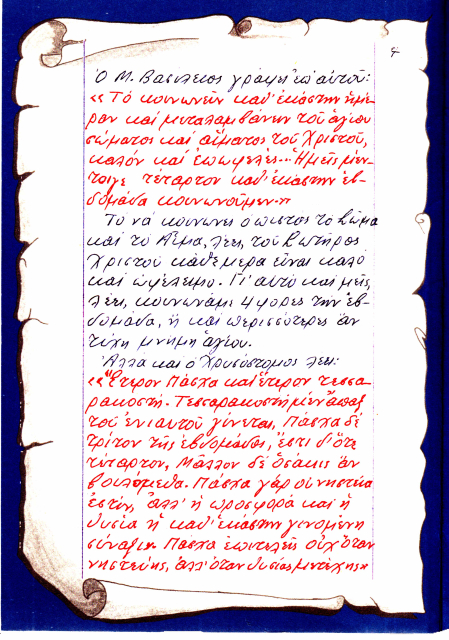 4
Ὁ Μ. Βασίλειος γράφει ἐπ' αὐτοῦ:
«Τό κοινωνεῖν καθ' ἑκάστην ἡμέ-
ραν καί μεταλαμβάνειν τοῦ ἁγίου
σώματος καί αἵματος τοῦ Χριστοῦ,
καλόν καί ἐπωφελές... Ἡμεῖς μέν-
τοιγε τέταρτον καθ' ἑκάστην ἑβ-
δομάδα κοινωνοῦμεν.»
Τό νά κοινωνεῖ ὁ πιστός τό Σῶμα
καί τό Αἷμα, λέει, τοῦ Σωτῆρος
Χριστοῦ κάθε μέρα εἶναι καλό
καί ὠφέλιμο. Γι' αὐτό καί μεῖς,
λέει, κοινωνᾶμε 4 φορές τήν ἑβ-
δομάδα, ἤ καί περισσότερες ἄν
τύχη μνήμη ἁγίου.
Ἀλλά καί ὁ Χρυσόστομος λέει:
«Ἕτερον Πάσχα καί ἕτερον τεσσα-
ρακοστή. Τεσσαρακοστή μέν ἅπαξ
τοῦ ἐνιαυτοῦ γίνεται, Πάσχα δέ
τρίτον τῆς ἑβδομάδος, ἔστι δ' ὅτε
τέταρτον, Μᾶλλον δέ ὁσάκις ἄν
βουλόμεθα. Πάσχα γάρ οὐ νηστεία
ἐστίν, ἀλλ' ἡ προσφορά καί ἡ
θυσία ἡ καθ' ἑκάστην γινομένη
σύναξιν. Πάσχα ἐπιτελεῖς οὐχ ὅταν
νηστεύης, ἀλλ' ὅταν θυσίας μετέχης»